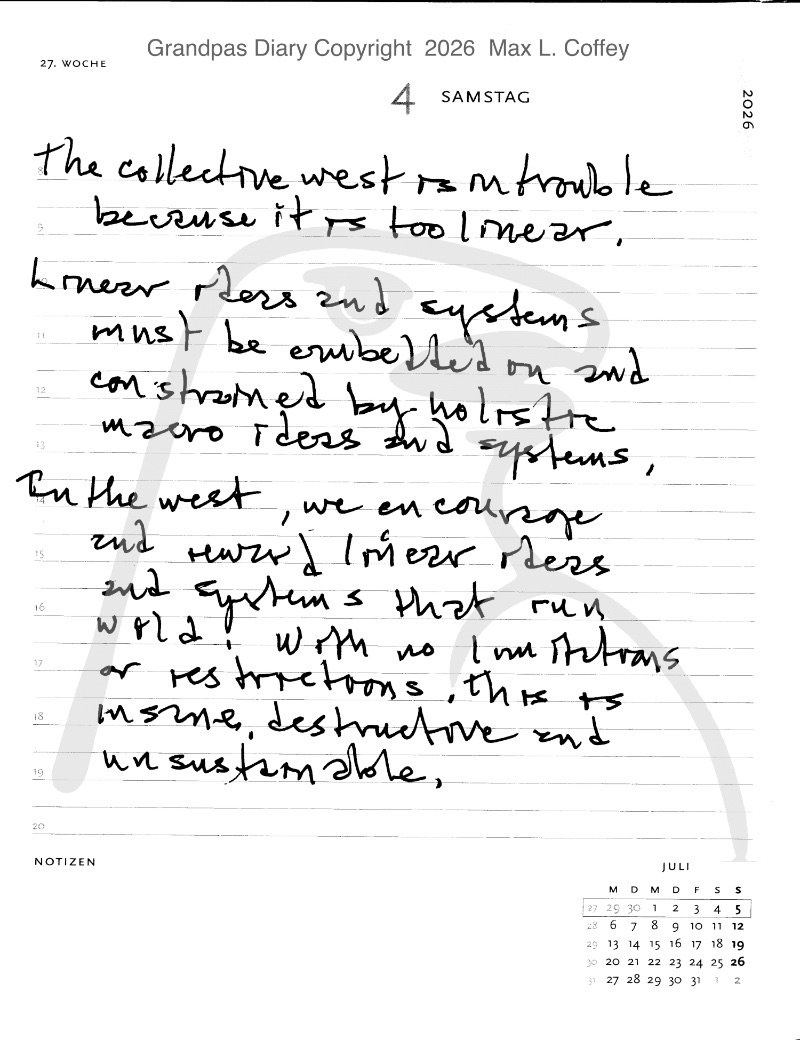 Grandpas Diary Copyright 2026 Max L. Coffey
27. WOCHE
4 SAMSTAG
2026
The collective west is in trouble
because it is too linear.
Linear ideas and systems
must be embedded on and
constrained by holistic
macro ideas and systems,
In the west, we encourage
and reward linear ideas
and systems that run
wild! With no limitations
or restrictions. This is
insane, destructive and
unsustainable,
8
9
11
12
13
14
15
16
17
18
19
20
NOTIZEN
JULI
M D M D F S S
27 29 30 1 2 3 4 5
28 6 7 8 9 10 11 12
29 13 14 15 16 17 18 19
30 20 21 22 23 24 25 26
31 27 28 29 30 31 1 2